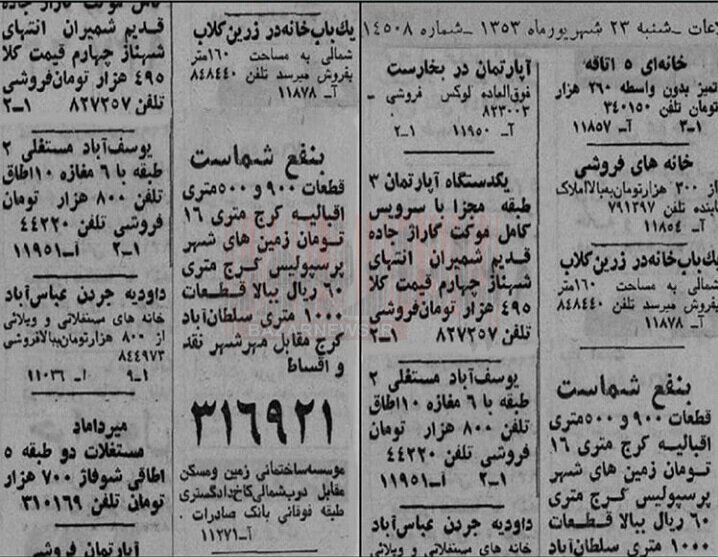 عات ـ شنبه ۲۳ شهریورماه ۱۳۵۳ ـ شماره ۱۴۵۰۸
خانه‌ای ۵ اتاقه
تمیز بدون واسطه ۲۶۰ هزار
تومان تلفن ۳۴۰۱۵۰
۳ـ۱ آـ ۱۱۸۵۷
خانه های فروشی
از ۳۰۰ هزارتومان‌ببالااملاک
آینده تلفن ۷۹۱۳۹۷
آـ ۱۱۸۵۴
یك‌باب‌خانه‌در زرین‌کلاب
شمالی به مساحت ۱۶۰متر
بفروش میرسد تلفن ۸۴۸۴۴۰
آـ ۱۱۸۷۸
بنفع شماست
قطعات ۹۰۰ و ۵۰۰متری
اقبالیه کرج متری ۱۶
تومان زمین های شهر
پرسپولیس کرج متری
۶۰ ریال ببالا قطعات
۱۰۰۰ متری سلطان‌آباد
آپارتمان در بخارست
فوق‌العاده لوکس فروشی ـ
۸۲۳۰۰۳
۲ـ۱ آـ ۱۱۹۵۰
یکدستگاه آپارتمان ۳
طبقه مجزا با سرویس
کامل موکت گاراژ جاده
قدیم شمیران انتهای
شهناز چهارم قیمت کلا
۴۹۵ هزار تومان‌فروشی
تلفن ۸۲۷۲۵۷ ۲ـ۱
یوسف‌آباد مستغلی ۲
طبقه با ۶ مغازه ۱۰اطاق
تلفن ۸۰۰ هزار تومان
فروشی تلفن ۴۴۲۲۰
۲ـ۱ آـ۱۱۹۵۱
داودیه جردن عباس‌آباد
خانه های مستغلاتی و ویلائی
یك‌باب‌خانه‌در زرین‌کلاب
شمالی به مساحت ۱۶۰متر
بفروش میرسد تلفن ۸۴۸۴۴۰
آـ ۱۱۸۷۸
بنفع شماست
قطعات ۹۰۰ و ۵۰۰متری
اقبالیه کرج متری ۱۶
تومان زمین های شهر
پرسپولیس کرج متری
۶۰ ریال ببالا قطعات
۱۰۰۰ متری سلطان‌آباد
کرج مقابل مهرشهر نقد
و اقساط
۳۱۶۹۲۱
موسسه‌ساختمانی زمین ومسکن
مقابل درب‌شمالی‌کاخ‌دادگستری
طبقه فوقانی بانک صادرات ـ
آـ۱۱۲۷۱
کامل موکت گاراژ جاده
قدیم شمیران انتهای
شهناز چهارم قیمت کلا
۴۹۵ هزار تومان‌فروشی
تلفن ۸۲۷۲۵۷ ۲ـ۱
یوسف‌آباد مستغلی ۲
طبقه با ۶ مغازه ۱۰اطاق
تلفن ۸۰۰ هزار تومان
فروشی تلفن ۴۴۲۲۰
۲ـ۱ آـ۱۱۹۵۱
داودیه جردن عباس‌آباد
خانه های مستغلاتی و ویلائی
از ۸۰۰ هزارتومان‌ببالافروشی
۸۴۴۹۷۳
۹ـ۱ آـ ۱۱۰۳۶
میرداماد
مستغلات دو طبقه ۵
اطاقی شوفاژ ۷۰۰ هزار
تومان تلفن ۳۱۰۱۶۹
آپارتمان فروشی
BAZARNEWS.IR